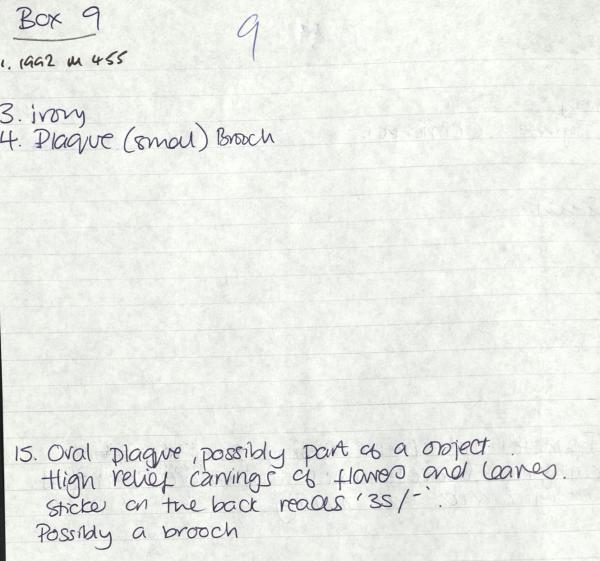 Box 9
9
1. 1992 M 455
3. ivory
4. Plaque (small) Brooch
15. Oval plaque, possibly part of a object.
High relief carvings of flowers and leaves.
Sticker on the back reads '35/-'.
Possibly a brooch